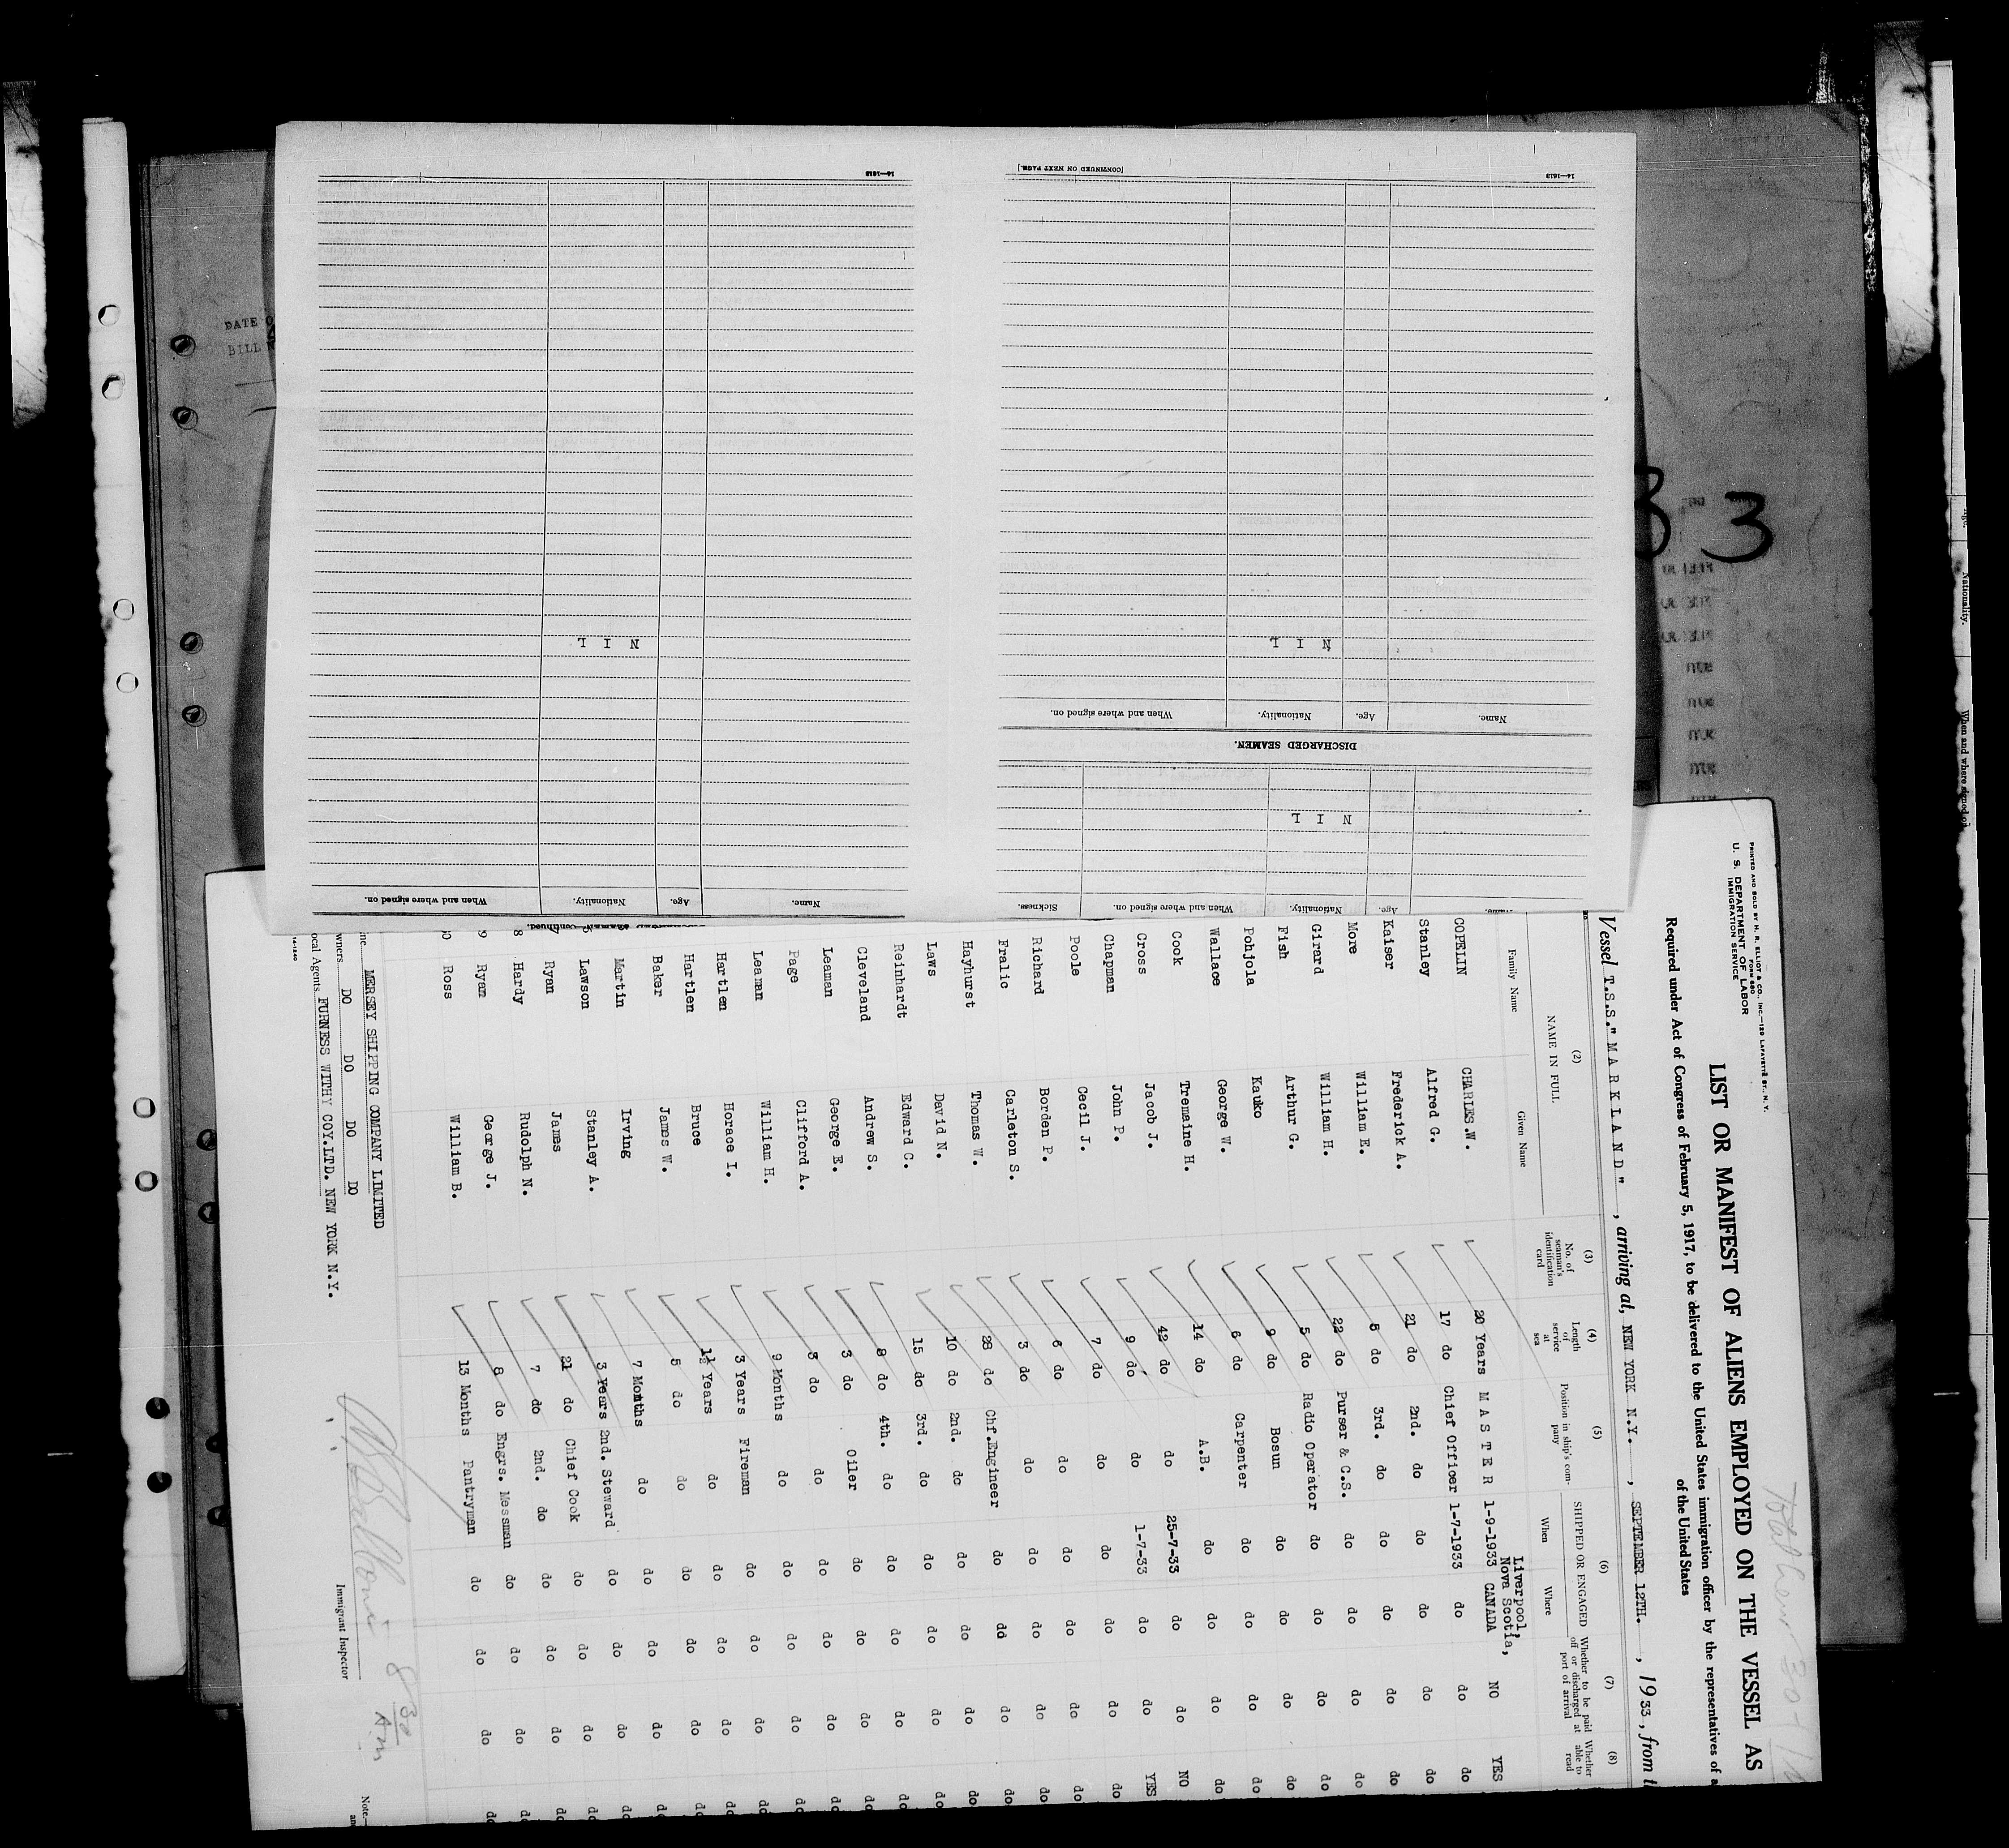 14—1613
[CONTINUED ON NEXT PAGE.]
14—1613
N I L
N I L
When and where signed on.
Nationality.
Age.
Name.
DISCHARGED SEAMEN.
N I L
Sickness.
When and where signed on.
Nationality.
Age.
Name.
When and where signed on.
Nationality.
Age.
Name.
DATE O
BILL N
3
Age.
Nationality.
When and where signed on
PRINTED AND SOLD BY H. R. ELLIOT & CO., INC.—129 LAFAYETTE ST., N. Y.
FORM 680
U. S. DEPARTMENT OF LABOR
IMMIGRATION SERVICE
Total Crew 30
LIST OR MANIFEST OF ALIENS EMPLOYED ON THE VESSEL AS
Required under Act of Congress of February 5, 1917, to be delivered to the United States immigration officer by the representatives of a
of the United States
Vessel T.S.S." M A R K L A N D " , arriving at, NEW YORK N.Y. , SEPTEMBER 12TH. , 1933, from t
(2) (3) (4) (5) (6) (7) (8)
NAME IN FULL
Family Name Given Name
No. of seaman's identification card
Length of service at sea
Position in ship's company
SHIPPED OR ENGAGED
When Where
Whether to be paid off or discharged at port of arrival
Whether able to read
Liverpool,
Nova Scotia,
COPELIN CHARLES.W. 20 Years M A S T E R 1-9-1933 CANADA NO YES
Stanley Alfred G. 17 do Chief Officer 1-7-1933 do do do
Kaiser Frederick A. 21 do 2nd. do do do do do
More William E. 5 do 3rd. do do do do do
Girard William H. 22 do Purser & C.S. do do do do
Fish Arthur G. 5 do Radio Operator do do do do
Pohjola Kauko 9 do Bosun do do do do
Wallace George W. 6 do Carpenter do do do do
Cook Tremaine H. 14 do A.B. do do do do
Cross Jacob J. 42 do do 25-7-33 do do NO
Chapman John P. 9 do do 1-7-33 do do YES
Poole Cecil J. 7 do do do do do do
Richard Borden P. 6 do do do do do do
Fralic Carleton S. 3 do do do do do do
Hayhurst Thomas W. 28 do Chf.Engineer do do do do
Laws David N. 10 do 2nd. do do do do do
Reinhardt Edward C. 15 do 3rd. do do do do do
Cleveland Andrew S. 8 do 4th. do do do do do
Leaman George E. 3 do Oiler do do do do
Page Clifford A. 3 do do do do do do
Leaman William H. 9 Months do do do do do
Hartlen Horace I. 3 Years Fireman do do do do
Hartlen Bruce 1½ Years do do do do do
Baker James W. 5 do do do do do do
Martin Irving 7 Months do do do do do
Lawson Stanley A. 3 Years 2nd. Steward do do do do
7 Ryan James 21 do Chief Cook do do do do
8 Hardy Rudolph N. 7 do 2nd. do do do do do
9 Ryan George J. 8 do Engrs. Messman do do do do
0 Ross William B. 13 Months Pantryman do do do do
ne MERSEY SHIPPING COMPANY LIMITED
wners DO DO DO DO
ocal Agents FURNESS WITHY COY.LTD. NEW YORK N.Y.
14-1240
8 30 A.m
Immigrant Inspector
Note.—
an